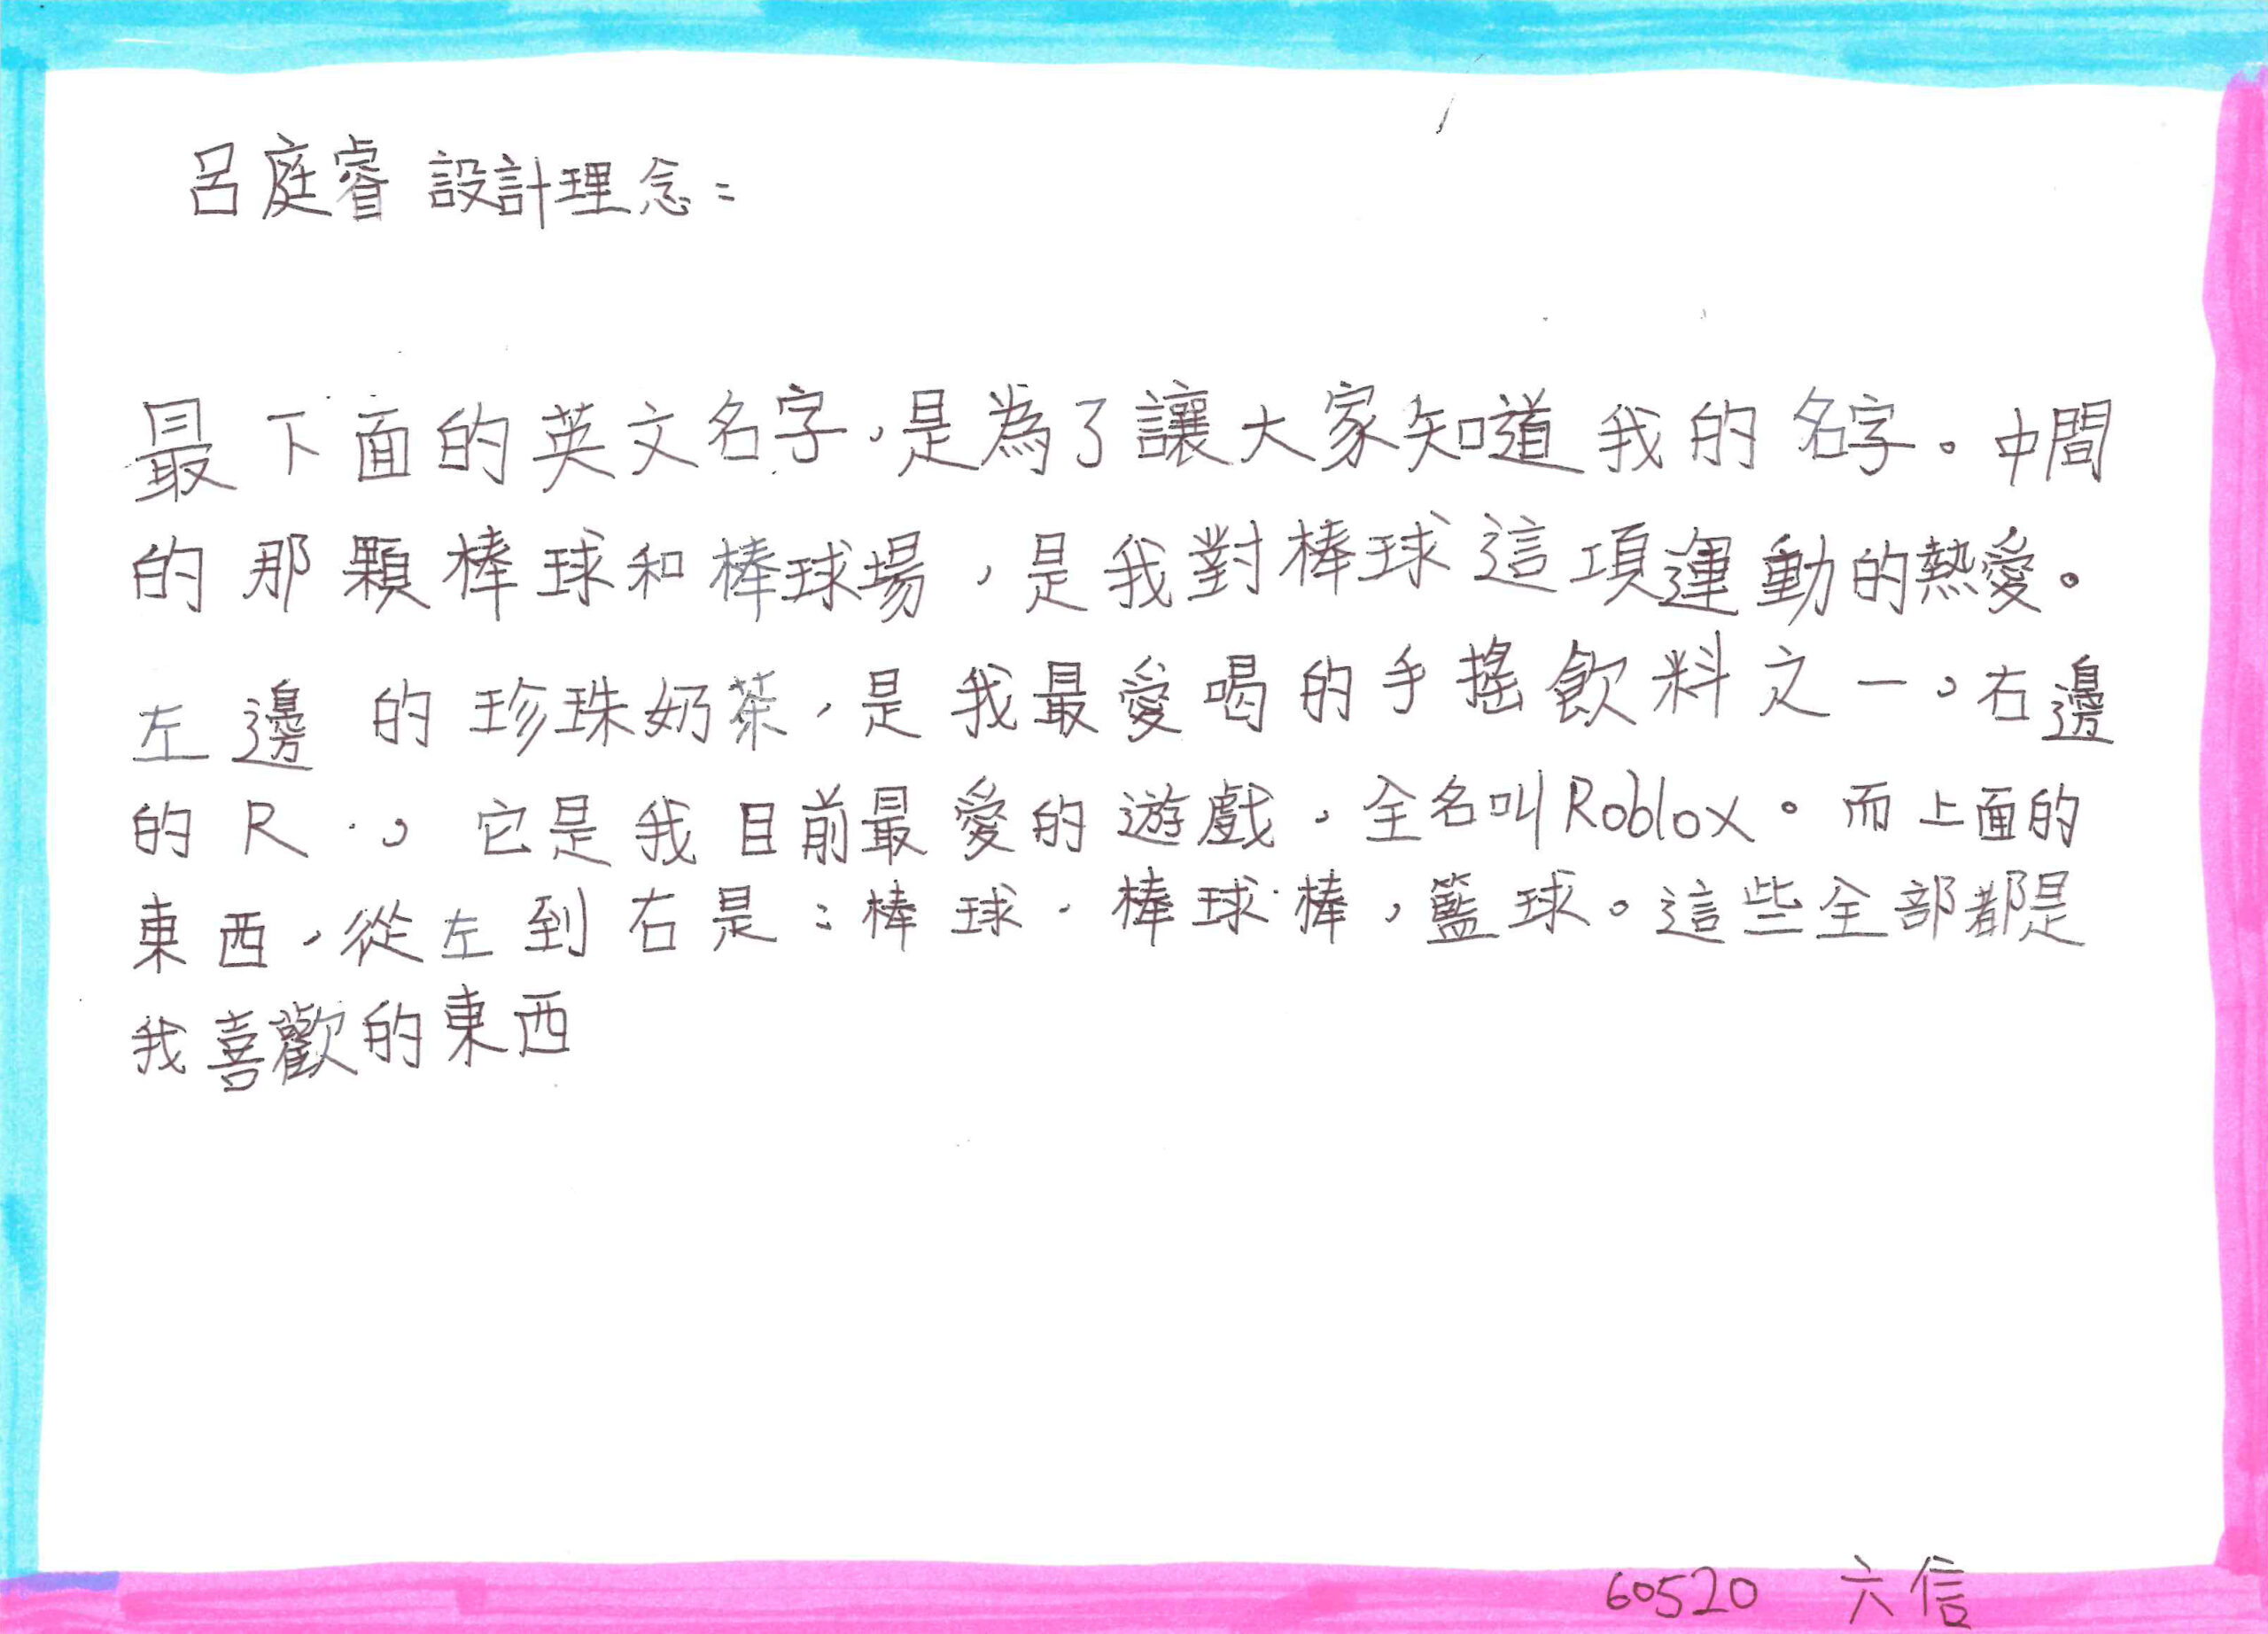 呂庭睿 設計理念：
最下面的英文名字，是為了讓大家知道我的名字。中間
的那顆棒球和棒球場，是我對棒球這項運動的熱愛。
左邊的珍珠奶茶，是我最愛喝的手搖飲料之一。右邊
的R。它是我目前最愛的遊戲，全名叫Roblox。而上面的
東西，從左到右是：棒球，棒球棒，籃球。這些全部都是
我喜歡的東西
60520 六信